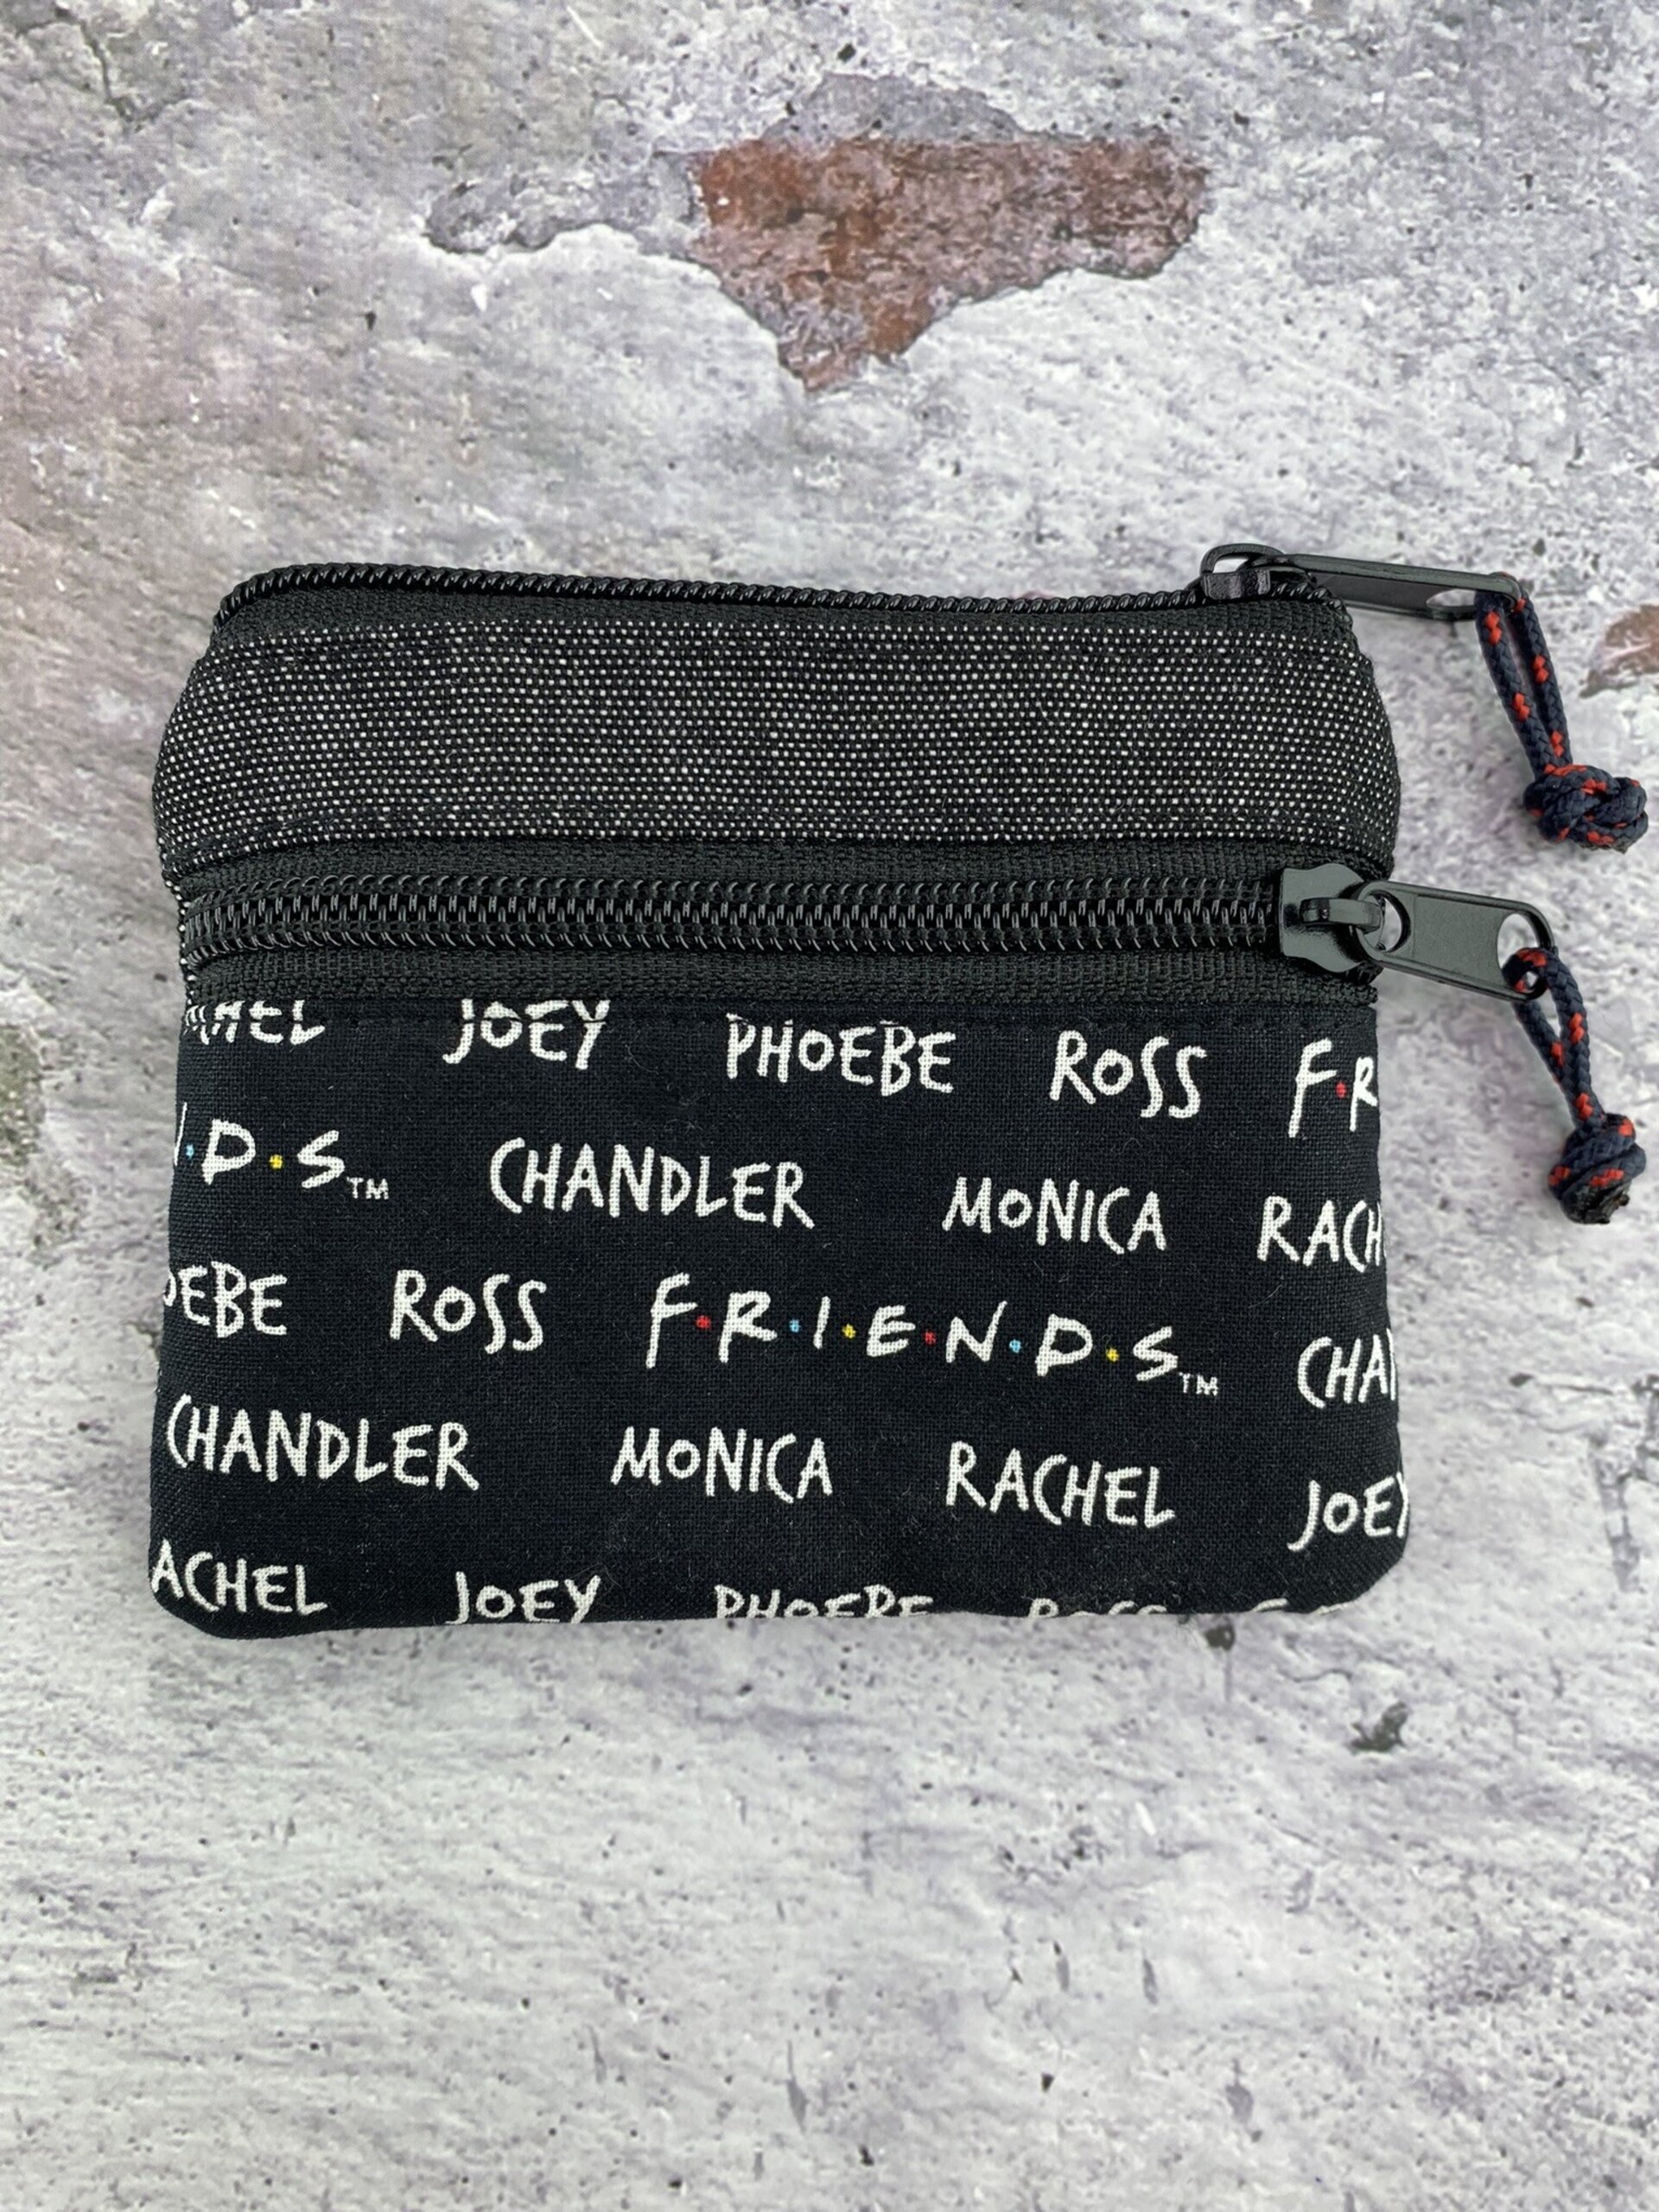 RACHEL JOEY PHOEBE ROSS F·R
N·D·S™ CHANDLER MONICA RACH
OEBE ROSS F·R·I·E·N·D·S™ CHAN
CHANDLER MONICA RACHEL JOEY
ACHEL JOEY PHOEBE ROSS